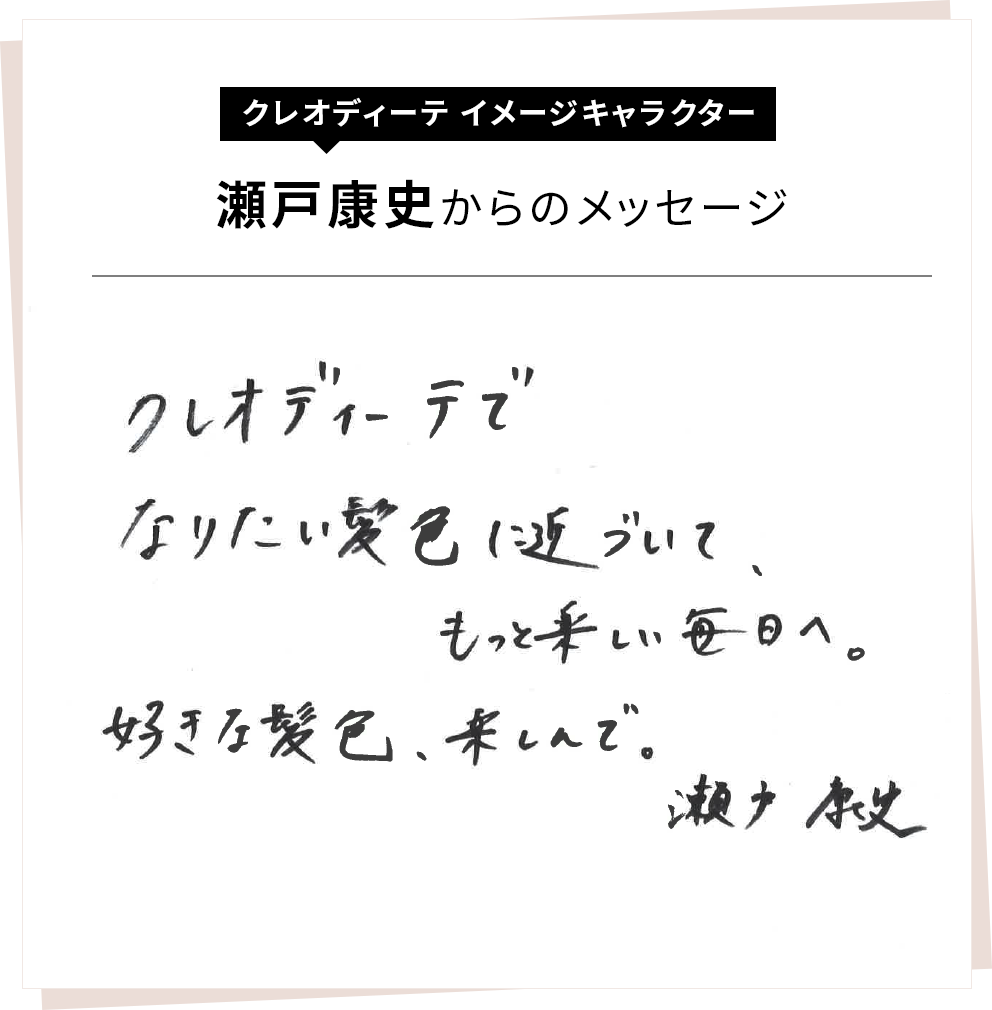 クレオディーテ イメージキャラクター
瀬戸康史からのメッセージ
クレオディーテで
なりたい髪色に近づいて、
もっと楽しい毎日へ。
好きな髪色、楽しんで。
瀬戸 康史